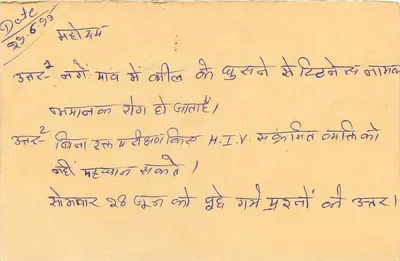 Date
29.6.93
महोदय
उत्तर-2 नंगे पाव में कील के घुसने से टिटनेस नामक
भयानक रोग हो जाता है।
उत्तर-2 बिना रक्त परीक्षण किए H.I.V. संक्रमित व्यक्ति को
नहीं पहचान सकते।
सोमवार 28 जून को पूछे गये प्रश्नों के उत्तर।